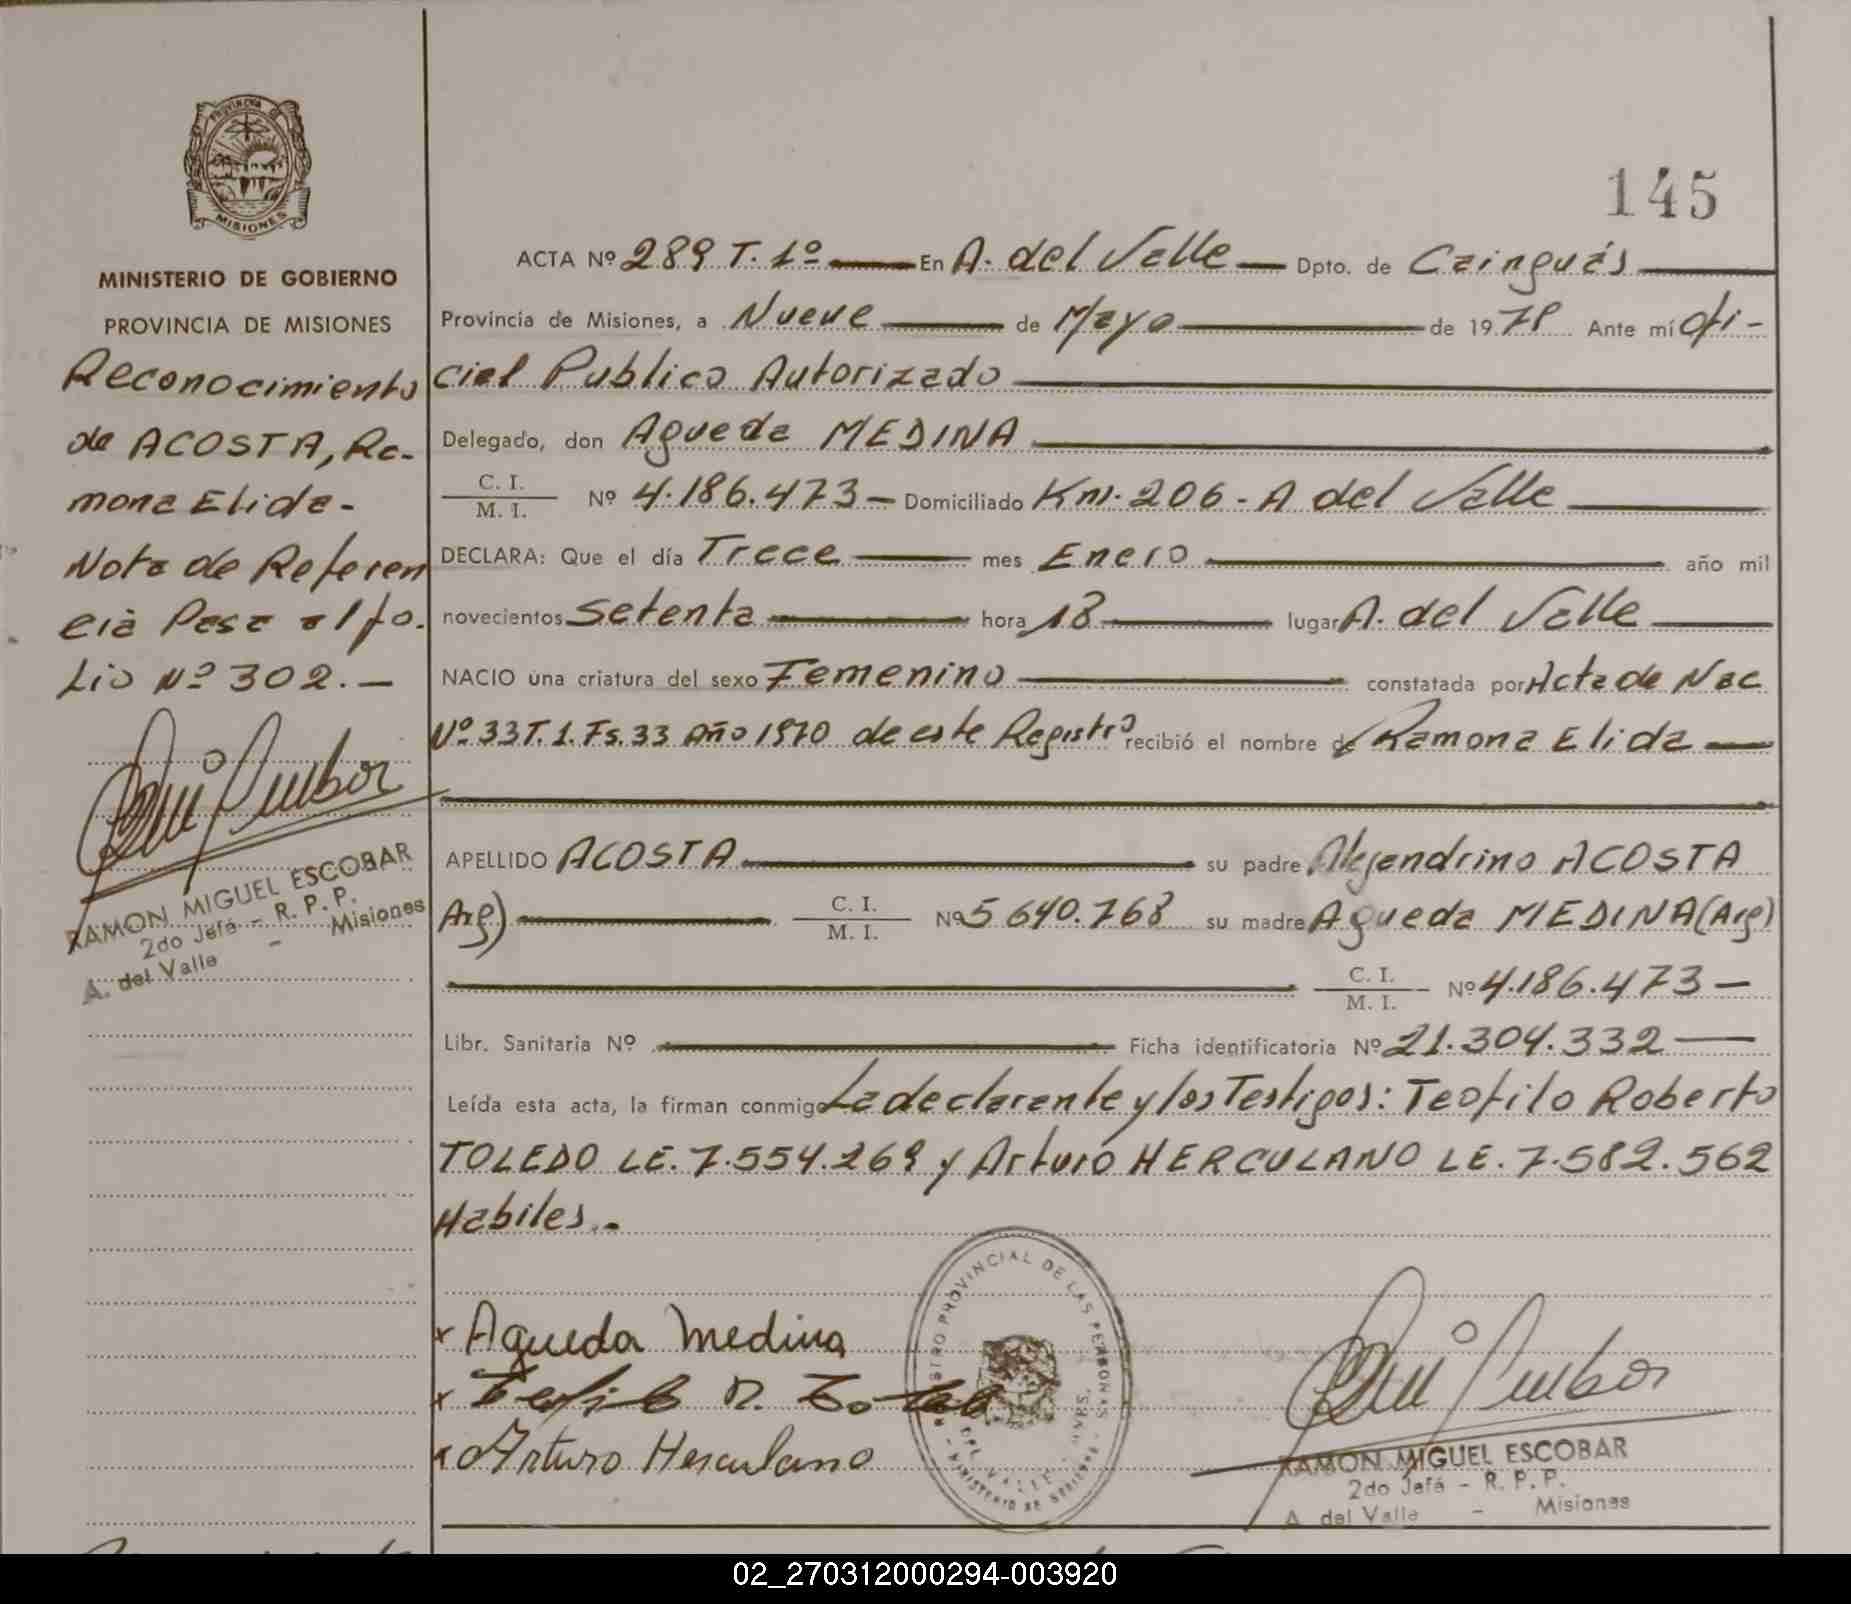 PROVINCIA DE
MISIONES
MINISTERIO DE GOBIERNO
PROVINCIA DE MISIONES
Reconocimiento
de ACOSTA, Ra-
mona Elida-
Nota de Referen
cia Pasa al fo.
Lio Nº 302.-
RAMON MIGUEL ESCOBAR
2do Jefe - R. P. P.
A. del Valle - Misiones
145
ACTA Nº 289 T. 1º En A. del Valle Dpto. de Cainguás
Provincia de Misiones, a Nueve de Mayo de 1978 Ante mí Ofi-
cial Publico Autorizado
Delegado, don Agueda MEDINA
C. I.
M. I. Nº 4.186.473- Domiciliado Km. 206 - A del Valle
DECLARA: Que el día Trece mes Enero año mil
novecientos Setenta hora 18 lugar A. del Valle
NACIO una criatura del sexo Femenino constatada por Acta de Nac
Nº 33 T. 1. Fs. 33 Año 1970 de este Registro recibió el nombre de Ramona Elida
APELLIDO ACOSTA su padre Alejandrino ACOSTA
Arg) C. I.
M. I. Nº 5640.768 su madre Agueda MEDINA (Arg)
C. I.
M. I. Nº 4.186.473-
Libr. Sanitaria Nº Ficha identificatoria Nº 21.304.332
Leída esta acta, la firman conmigo La declarante y los Testigos: Teofilo Roberto
TOLEDO LE. 7.554.269 y Arturo HERCULANO LE. 7.582.562
Habiles.-
x Agueda Medina
x Teofilo R. Toledo
x Arturo Herculano
REGISTRO PROVINCIAL DE LAS PERSONAS
DEL VALLE
MINISTERIO DE GOBIERNO
RAMON MIGUEL ESCOBAR
2do Jefe - R. P. P.
A. del Valle - Misiones
02_270312000294-003920